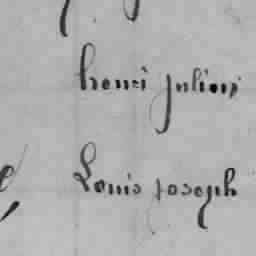 henri julien
Louis joseph